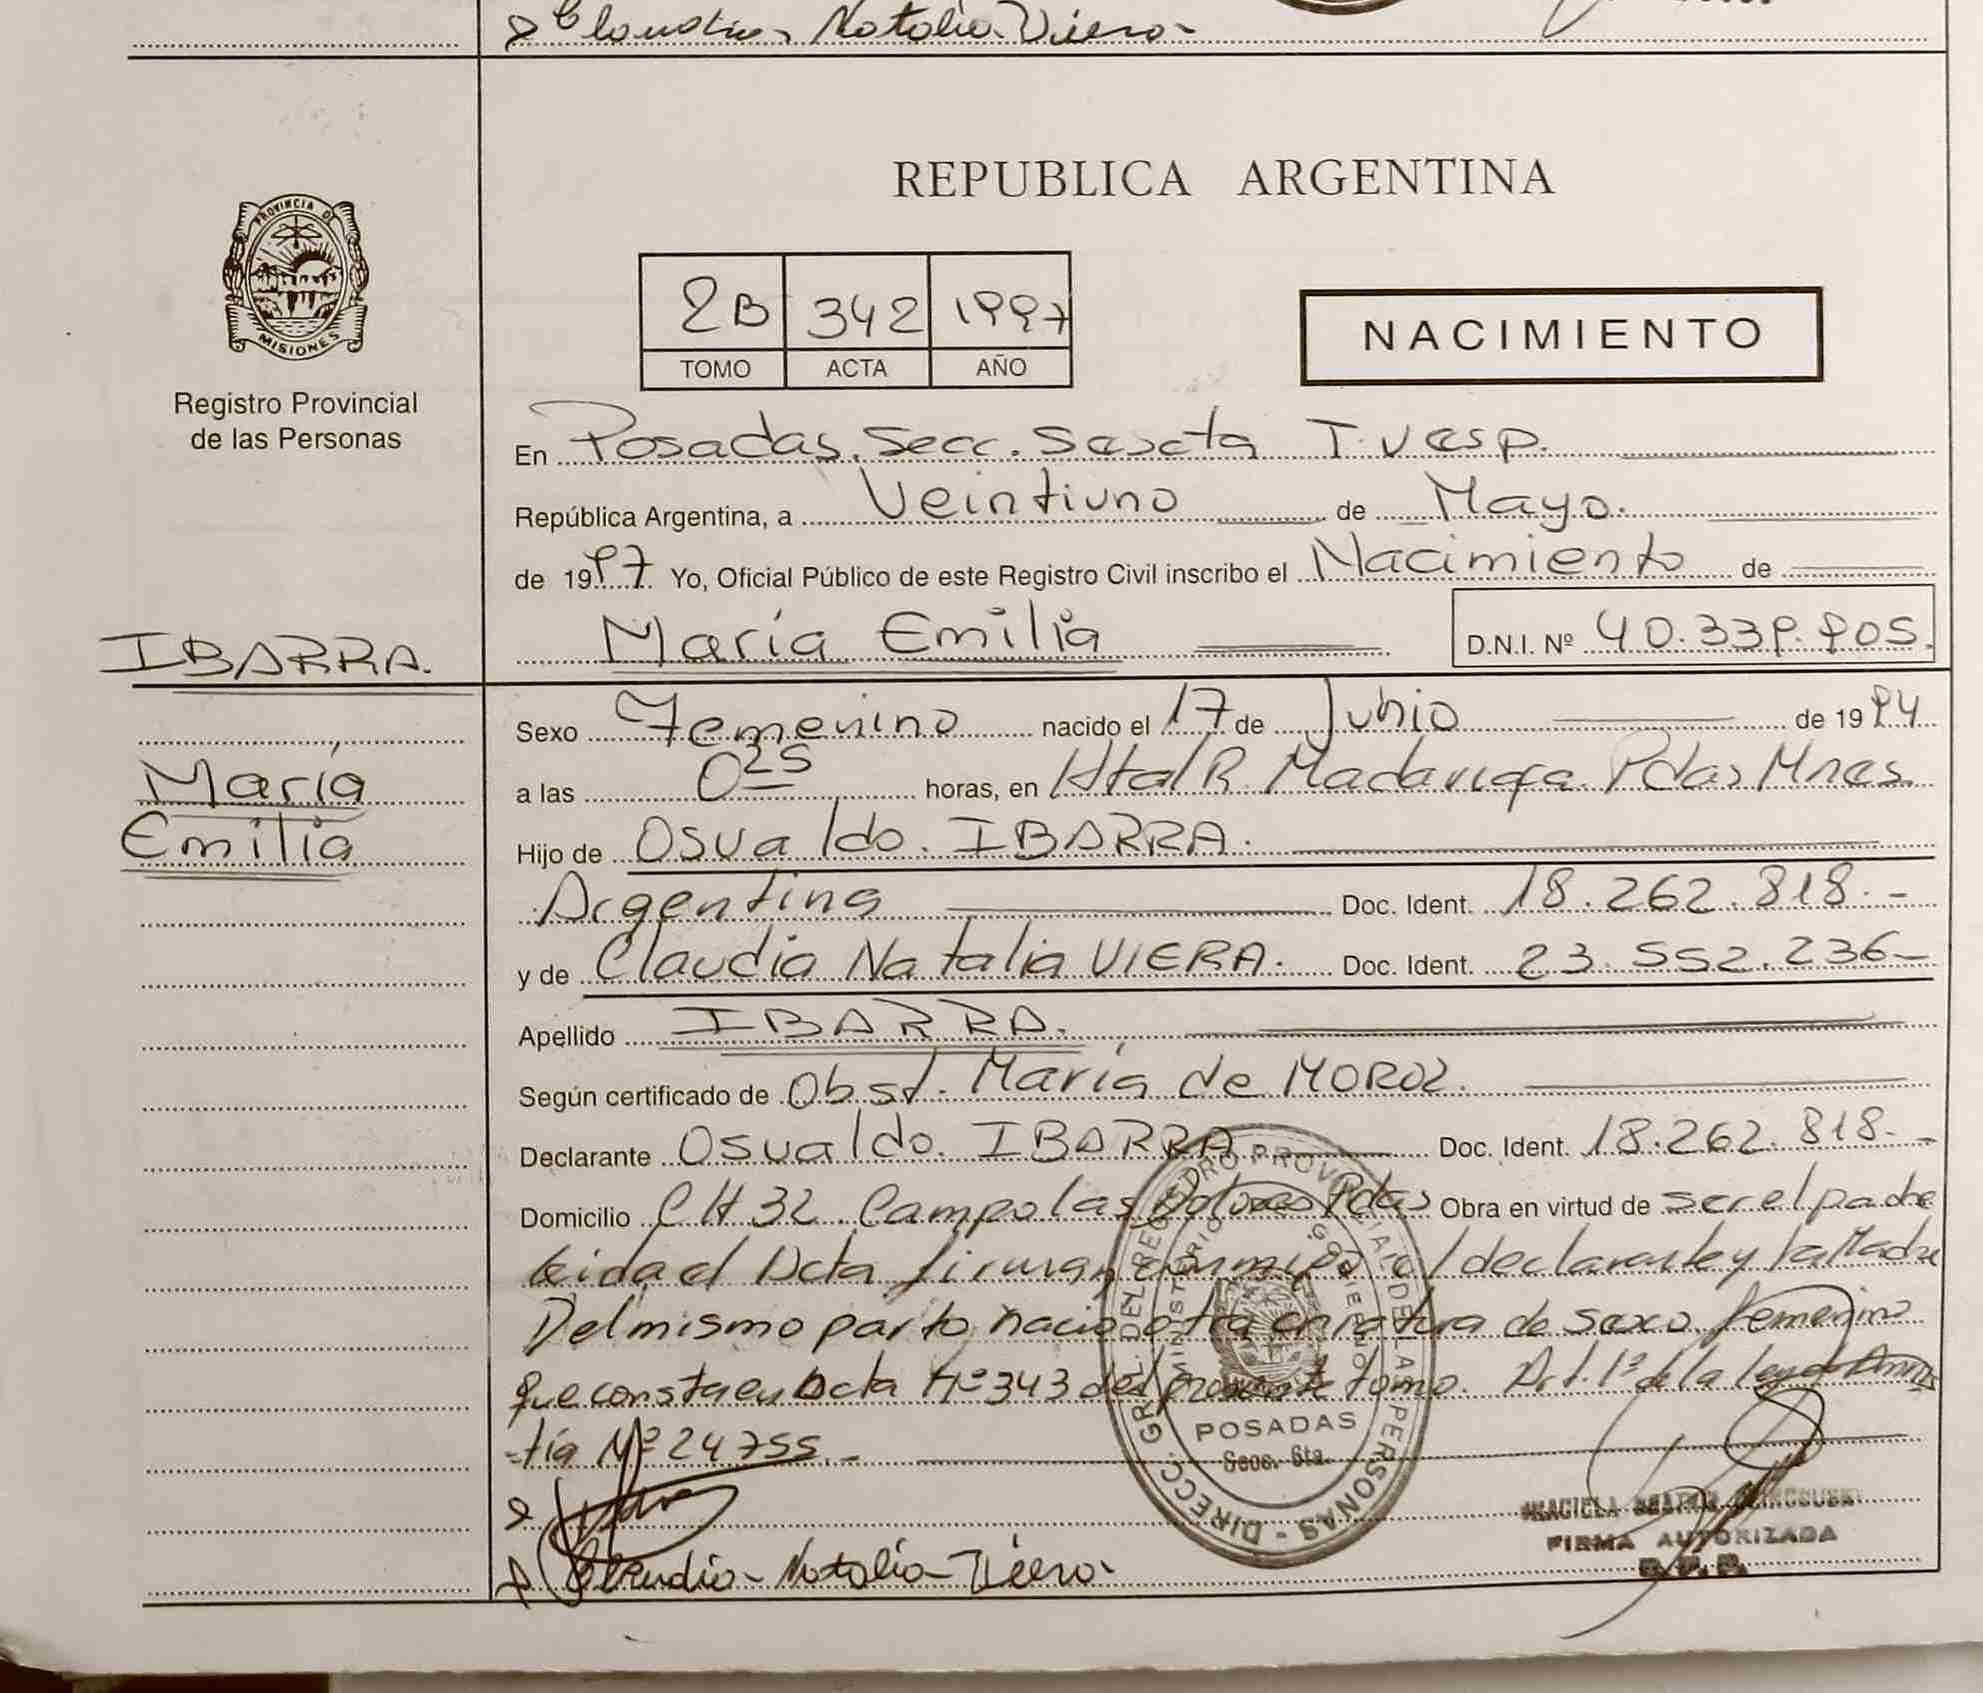 Claudia Natalia Viera
PROVINCIA DE
MISIONES
Registro Provincial
de las Personas
REPUBLICA ARGENTINA
2B 342 1997
TOMO ACTA AÑO
NACIMIENTO
En Posadas. Secc. Sexta T. Vesp.
República Argentina, a Veintiuno de Mayo.
de 1997. Yo, Oficial Público de este Registro Civil inscribo el Nacimiento de
IBARRA. María Emilia D.N.I. Nº 40.339.905.
Sexo Femenino nacido el 17 de Junio de 1994
María
a las 0 25 horas, en Htal R. Madariaga. Pdas Mnes.
Emilia
Hijo de Osvaldo. IBARRA.
Argentina Doc. Ident. 18.262.818.-
y de Claudia Natalia VIERA. Doc. Ident. 23.552.236-
Apellido IBARRA.
Según certificado de Obst. María de MOROZ.
Declarante Osvaldo. IBARRA Doc. Ident. 18.262.818.-
Domicilio CH 32 Campo las Dolores Pdas Obra en virtud de ser el padre
Leida el Acta firman conmigo el declarante y la Madre
Del mismo parto nacio otra criatura de sexo femenino
que consta en Acta Nº 343 del presente tomo. Art. 1º de la ley de Amnis
-tía Nº 24755.-
DIRECC. GRAL. DEL REGISTRO PROVINCIAL DE LAS PERSONAS
MINISTERIO DE GOBIERNO
POSADAS
Secc. 6ta.
FIRMA AUTORIZADA
Claudia Natalia Viera